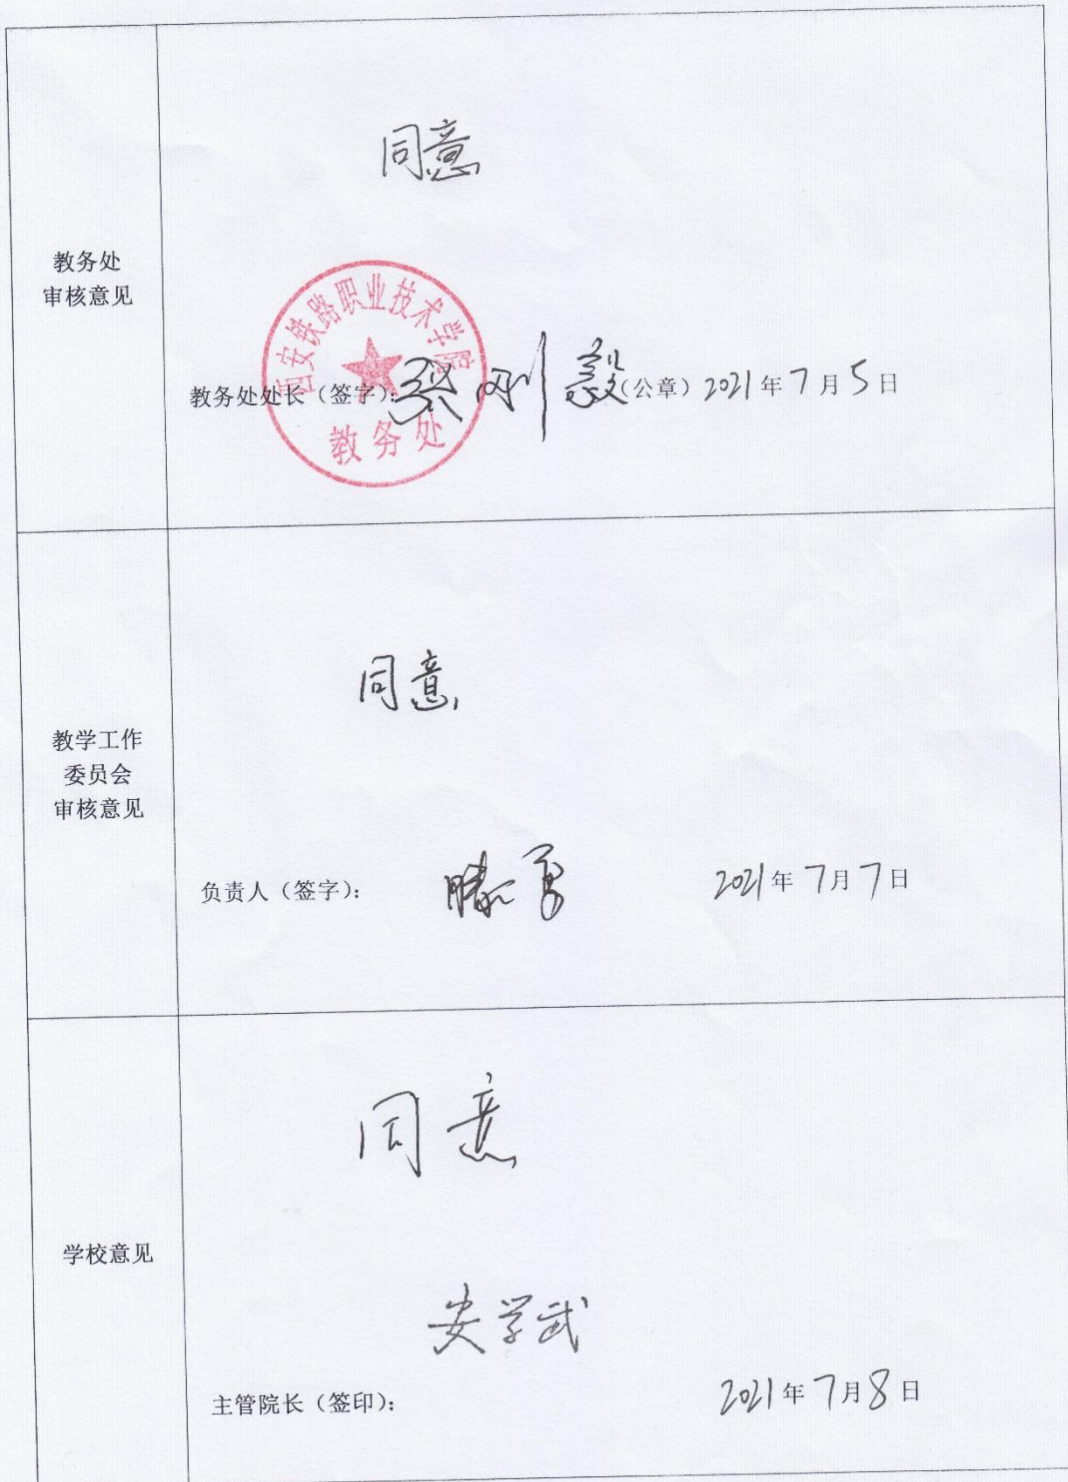 同意
教务处
审核意见
西安铁路职业技术学院
教务处
教务处处长（签字）：张刚毅（公章）2021年7月5日
同意
教学工作
委员会
审核意见
负责人（签字）： 滕勇 2021年7月7日
同意
学校意见
安学武
主管院长（签印）： 2021年7月8日